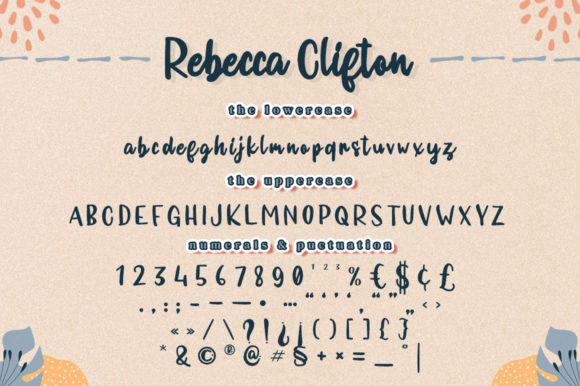 Rebecca Clifton
the lowercase
abcdefghijklmnopqrstuvwxyz
the uppercase
ABCDEFGHIJKLMNOPQRSTUVWXYZ
numerals & puctuation
1234567890 ¹²³ % € $ ¢ £
. , : ; - – — • … ‚ „ ‘ ’ “ ” ‹ ›
« » / \ ? ! ¿ ¡ ( ) [ ] { }
* & © ® @ # § + × = _ ° |